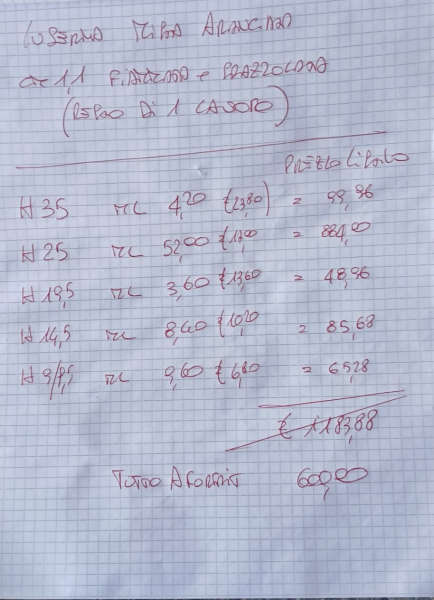 LUSERNA MISTA ARANCIATO
(RESTO DI 1 LAVORO)
PREZZO LISTINO
H 35 ML 4,20 (€23,80) = 99,96
H 25 ML 52,00 €17,00 = 884,00
H 19,5 ML 3,60 €13,60 = 48,96
H 14,5 ML 8,40 €10,20 = 85,68
H 9/9,5 ML 9,60 €6,80 = 65,28
€ 1183,88
TUTTO A FORFAIT 600,00